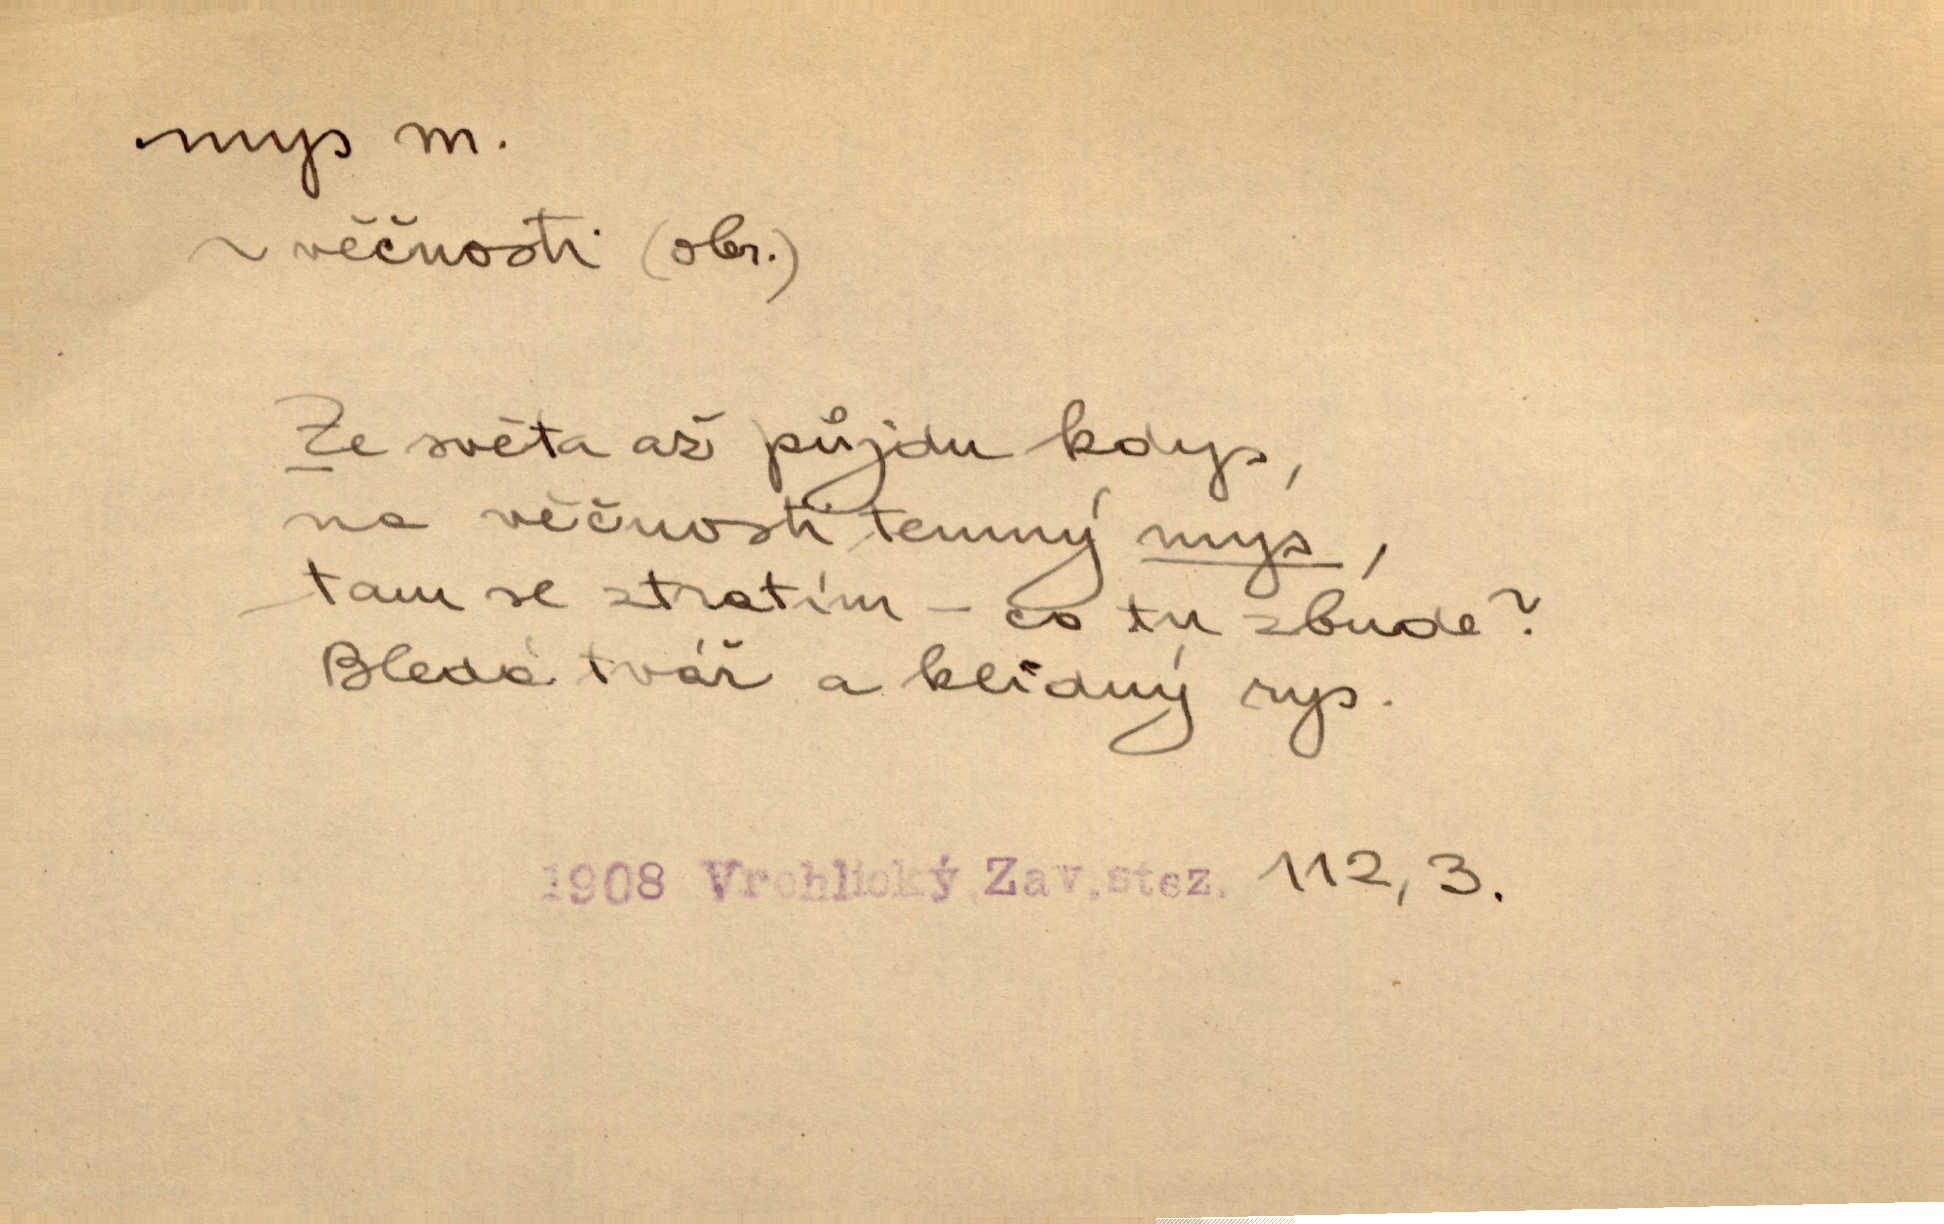 mys m.
~ věčnosti (obr.)
Ze světa až půjdu kdys,
na věčnosti temný mys,
tam se ztratím – co tu zbude?
Bledá tvář a klidný rys.
1908 Vrchlický, Zav.stez. 112, 3.